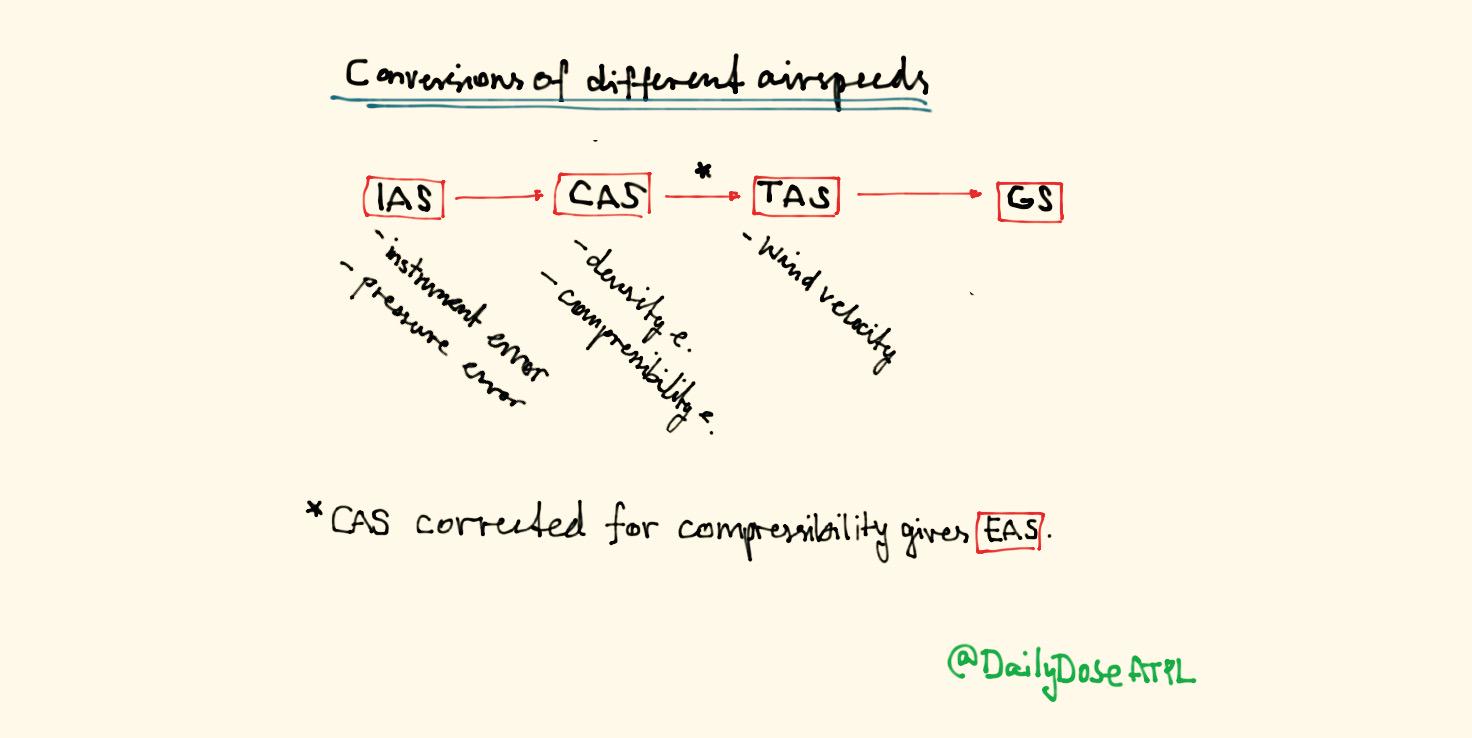 Conversions of different airspeeds
IAS CAS * TAS GS
- instrument error
- pressure error
- density e.
- compresibility e.
- Wind velocity
* CAS corrected for compressibility gives EAS.
@DailyDoseATPL